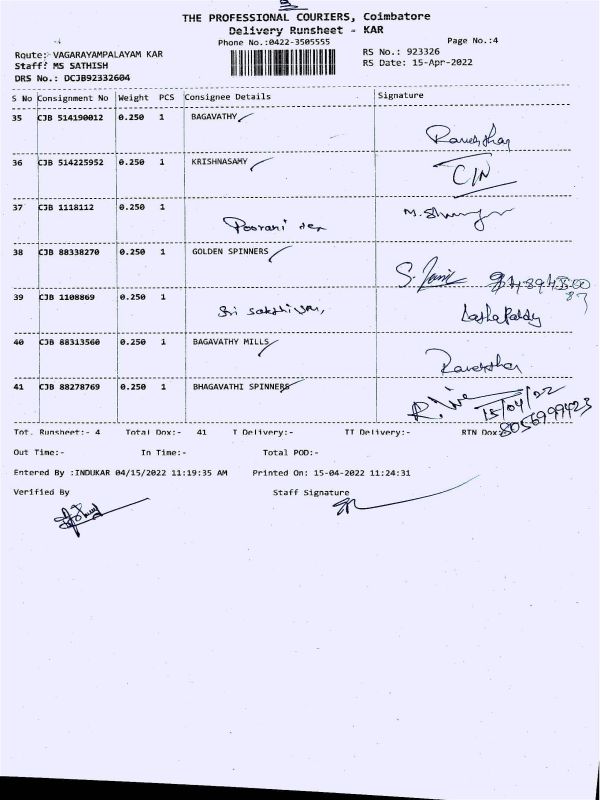 THE PROFESSIONAL COURIERS, Coimbatore
Delivery Runsheet - KAR
Phone No.:0422-3505555
Page No.:4
Route: VAGARAYAMPALAYAM KAR
RS No.: 923326
Staff: MS SATHISH
RS Date: 15-Apr-2022
DRS No.: DCJB92332604
S No Consignment No Weight PCS Consignee Details Signature
35 CJB 514190012 0.250 1 BAGAVATHY
36 CJB 514225952 0.250 1 KRISHNASAMY
37 CJB 1118112 0.250 1 Poorani tex
38 CJB 88338270 0.250 1 GOLDEN SPINNERS
39 CJB 1108869 0.250 1 Sri sakthi
40 CJB 88313560 0.250 1 BAGAVATHY MILLS
41 CJB 88278769 0.250 1 BHAGAVATHI SPINNERS
15/04/22
8056999423
Tot. Runsheet:- 4 Total Dox:- 41 T Delivery:- TT Delivery:- RTN Dox
Out Time:- In Time:- Total POD:-
Entered By :INDUKAR 04/15/2022 11:19:35 AM Printed On: 15-04-2022 11:24:31
Verified By Staff Signature